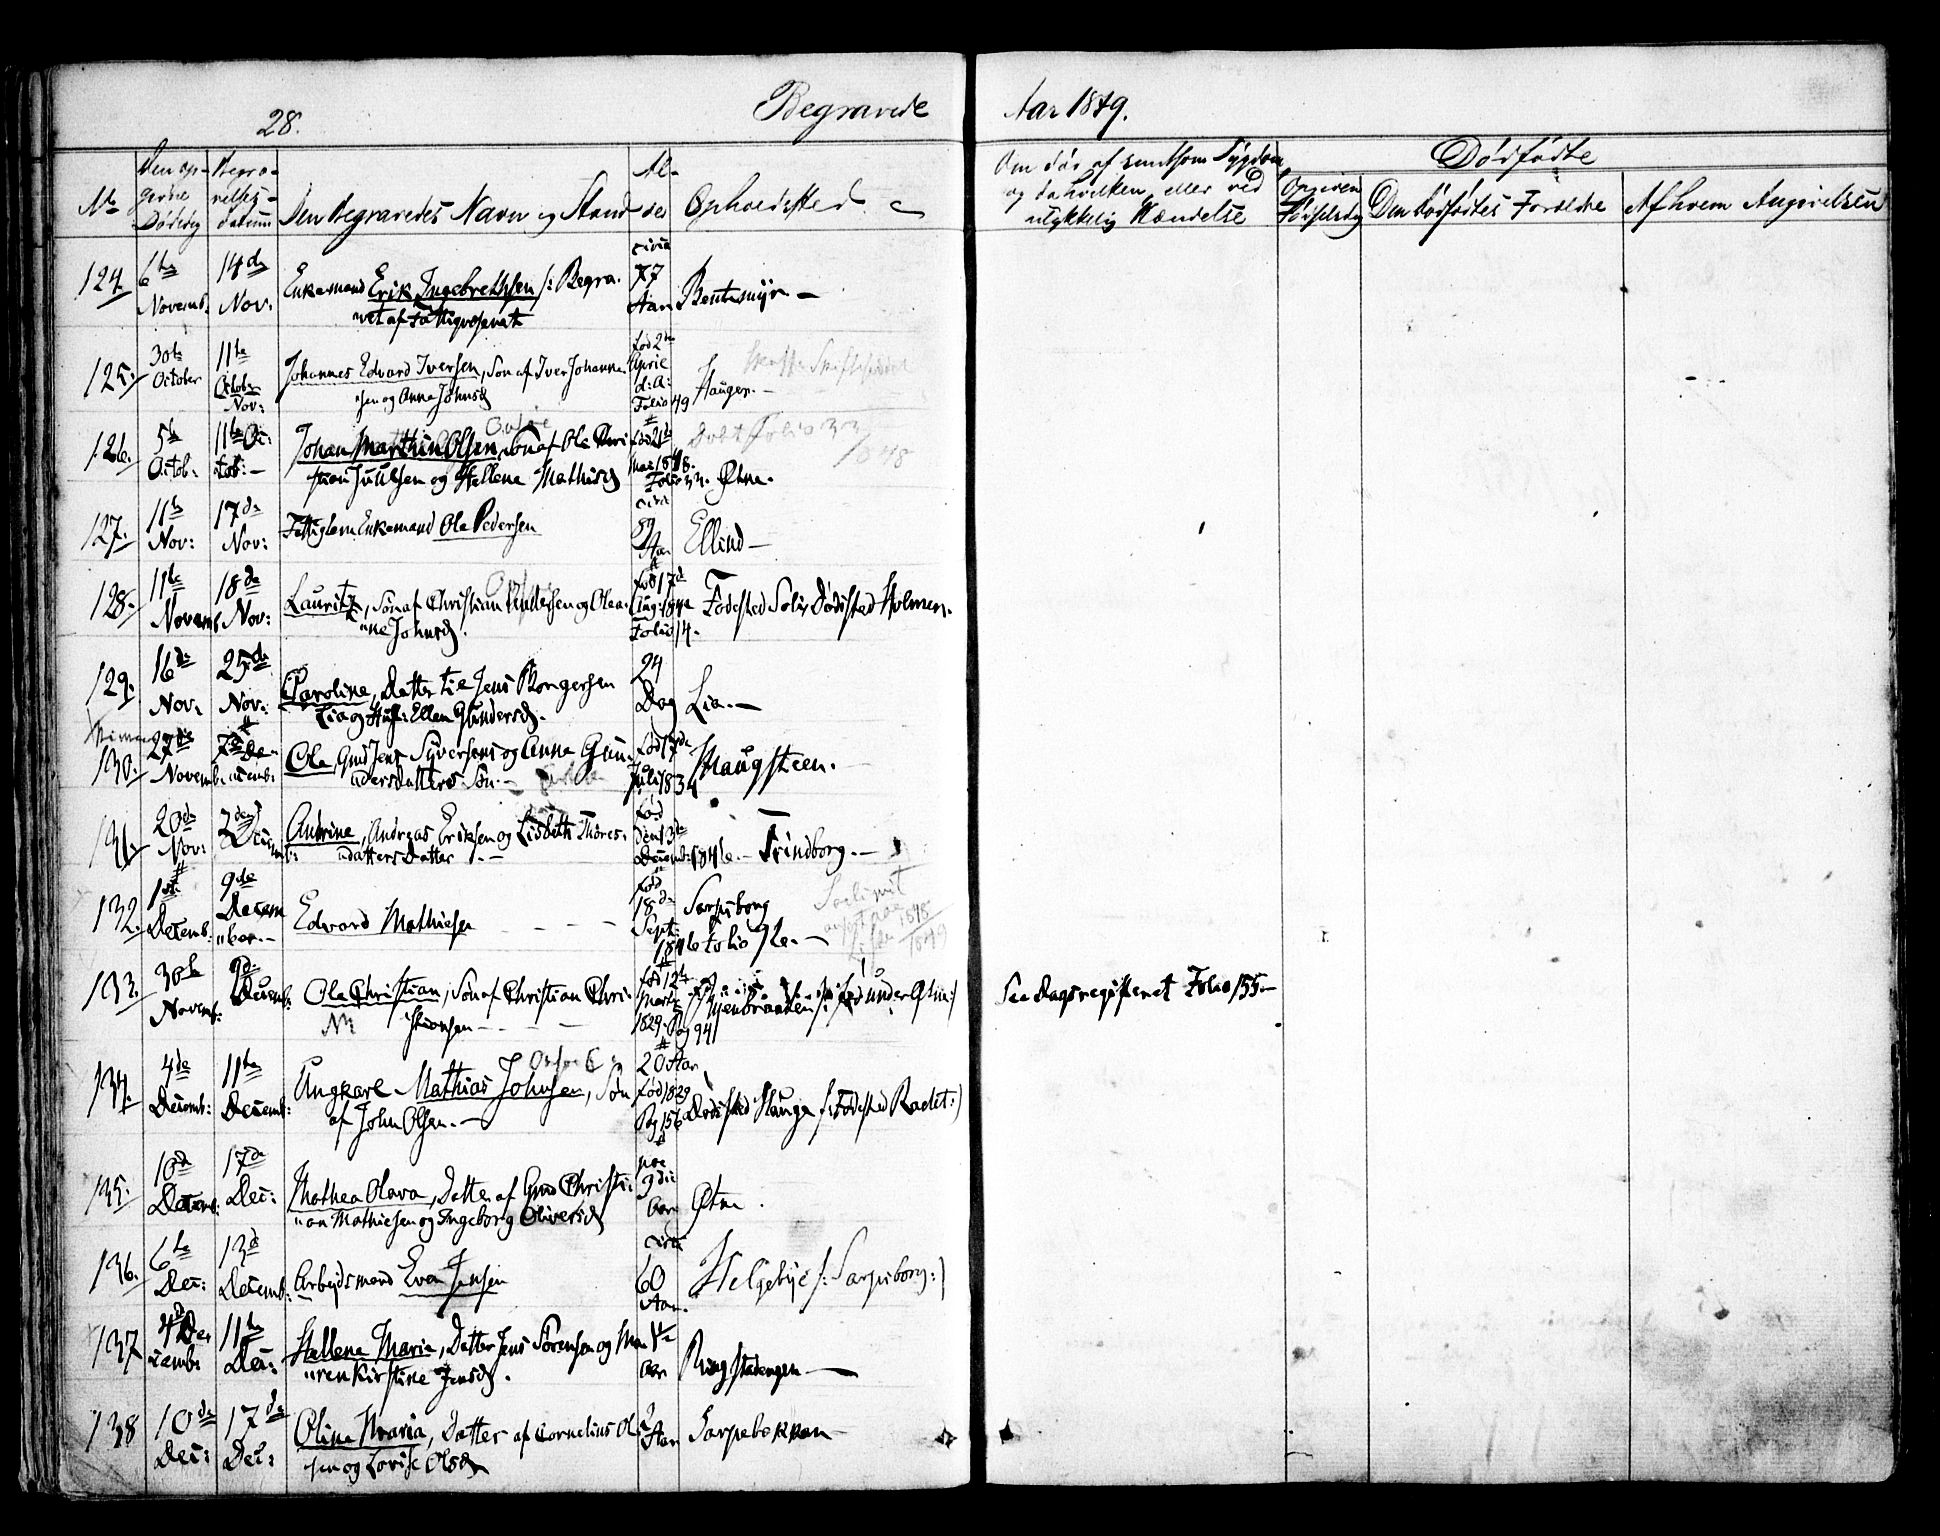 28.
Begravede
Aar 1849.
No
Den op-
givne
Dødsdag
Begra-
velses-
datum
Den Begravedes Navn og Stand
Al-
der
Opholdssted
Om død af smitsom Sygdom
og da hvilken, eller ved
ulykkelig Hændelse
Dødfødte
Opgiven
Fødselsdag
Den dødfødtes Forældre
Af hvem Angivelsen
124.
6te
Novemb:
14de
Nov.
Enkemand Erik Ingebrethsen /: Begra-
vet af Fattigvæsenet
circa
77
Aar
Bentsmyr —
125.
30te
October
11te
October
Nov:
Johannes Edvard Iversen, Søn af Iver Johanne-
sen og Anna Johnsd
fød 2de
April
d: A:
Folio 49
Haugen. —
126.
5te
Octob:
11te Oc-
tob: —
Johan Marthin Olsen, Søn af Ole Chri-
stian Juulsen og Hellene Mathisd
fød 21de
Mai 1848.
Folio 33.
Øtne.
Døbt Folio 33
1848
127.
11te
Nov:
17de
Nov:
Fattiglem Enkemand Ole Pedersen
circa
Aar
Ellind —
128.
11te
Novemb
18de
Nov:
Lauritz, Søn af Christian Pedersen og Olea-
ne Johnsd.
fød 17de
Aug:
Folio 14.
Fødested Solis Dødssted Holmen.
129.
16de
Nov.
25de
Nov.
Caroline, Datter til Jens Borgersen
Lia og Hust: Ellen Gundersd.
24
Dag
Lia. —
130.
27de
Novemb:
7de De-
cemb:
Ole, Gmd Jens Syversens og Anna Gun-
dersdatters Søn. —
fød 17de
Juli 1834
Haugsteen.
131.
20de
Nov:
2de
Decem
b:
Andrine, Andreas Eriksen og Lisbeth Thores-
datters Datter. —
fød
den 13de
Decemb: 1846. —
Trindborg. —
132.
1ste
Decemb:
9de
Decem
ber. —
Edvard Mathiesen
fød
18de
Sept:
1846 Folio 76. —
Sarpsborg
1848
1849
133.
30te
Novemb:
9de
Decemb:
Ole Christian, Søn af Christian Chri-
stiansen —
fød 12te
Marts
1829. Pag 94
/: fød under Øtne :/
See Dagsregisteret Folio 155. —
134.
4de
Decemb:
11te
Decemb:
Ungkarl Mathias Johnsen, Søn
af John Olsen. —
20 Aar
fød 1829
Pag 156
Dødssted Hauge /: Fødested Radet :/
135.
10de
Decemb:
17de
Dec:
Mathea Olava, Datter af Gmd Christi-
an Mathiesen og Ingeborg Oliversd
paa
3die
Aar
Øtne.
136.
6te
Dec:
13de
Decemb:
Arbeidsmand Even Jensen
circa
60
Aar.
Helgebye /: Sarpsborg :/
137
4de De-
cemb:
11te
Dec:
Hellene Marie, Datter Jens Sørensen og Ma-
ren Kirstine Jensd.
Aar
Ringstadengen —
138
10de
Dec:
17de
Dec:
Oline Maria, Datter af Cornelius Ol-
sen og Lovise Olsd
Aar
Sarpebakken